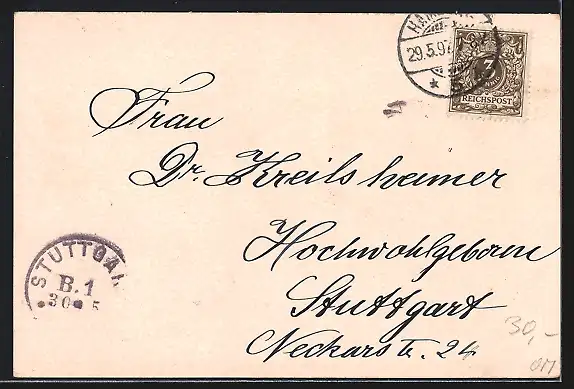 29.5.97
3
REICHSPOST
Frau
Dr. Kreilsheimer
Hochwohlgeboren
Stuttgart
Neckarstr. 24
STUTTGA
B.1
30 5
30,-